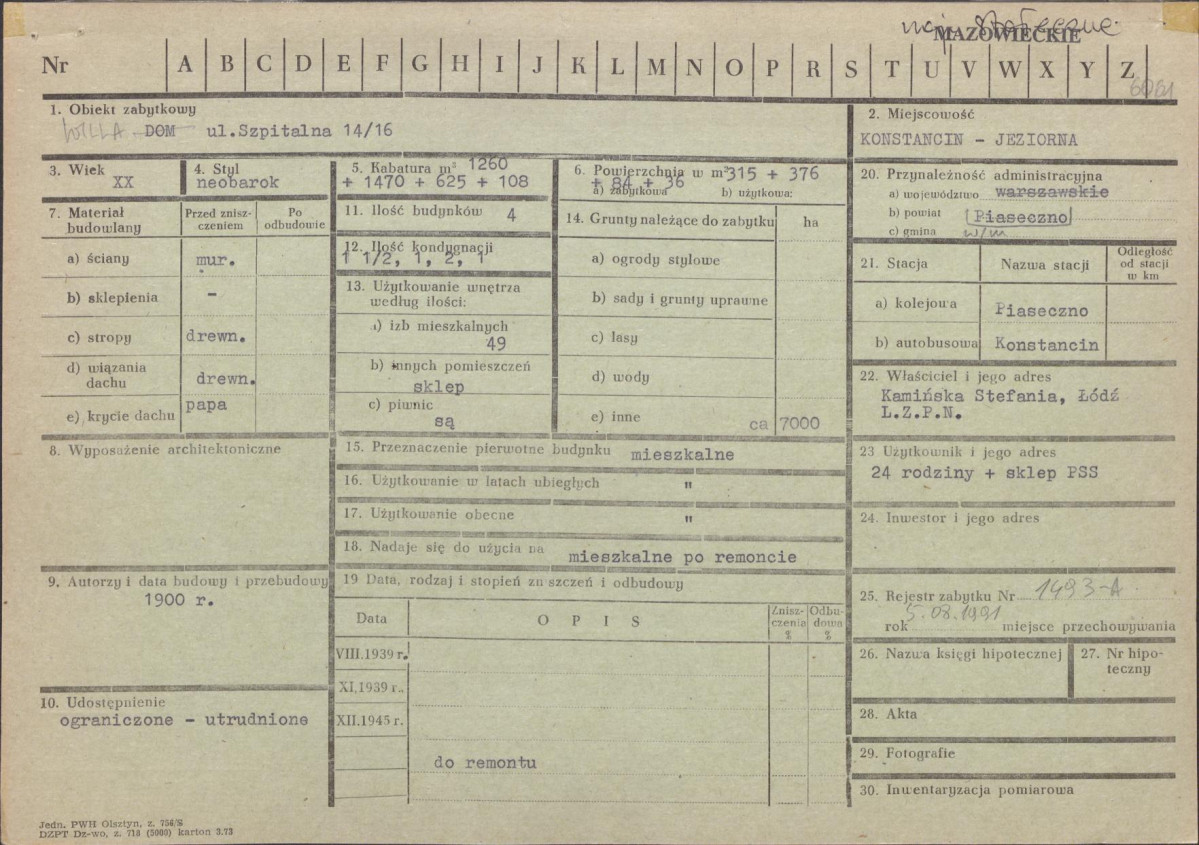 woj. stołeczne
MAZOWIECKIE
Nr A B C D E F G H I J K L M N O P R S T U V W X Y Z
6061
1. Obiekt zabytkowy
WILLA DOM ul.Szpitalna 14/16
2. Miejscowość
KONSTANCIN - JEZIORNA
3. Wiek
XX
4. Styl
neobarok
5. Kabatura m³ 1260
+ 1470 + 625 + 108
6. Powierzchnia w m² 315 + 376
+ 84 + 36
a) zabytkowa b) użytkowa:
7. Materiał budowlany
Przed zniszczeniem
Po odbudowie
a) ściany mur.
b) sklepienia -
c) stropy drewn.
d) wiązania dachu drewn.
e) krycie dachu papa
11. Ilość budynków 4
12. Ilość kondygnacji
1 1/2, 1, 2, 1
13. Użytkowanie wnętrza
według ilości:
a) izb mieszkalnych
49
b) innych pomieszczeń
sklep
c) piwnic
są
14. Grunty należące do zabytku ha
a) ogrody stylowe
b) sady i grunty uprawne
c) lasy
d) wody
e) inne ca 7000
20. Przynależność administracyjna
a) województwo warszawskie
b) powiat Piaseczno
c) gmina w/m
21. Stacja
Nazwa stacji
Odległość
od stacji
w km
a) kolejowa Piaseczno
b) autobusowa Konstancin
22. Właściciel i jego adres
Kamińska Stefania, Łódź
L.Z.P.N.
8. Wyposażenie architektoniczne
15. Przeznaczenie pierwotne budynku mieszkalne
16. Użytkowanie w latach ubiegłych "
17. Użytkowanie obecne "
18. Nadaje się do użycia na mieszkalne po remoncie
23 Użytkownik i jego adres
24 rodziny + sklep PSS
24. Inwestor i jego adres
9. Autorzy i data budowy i przebudowy
1900 r.
19 Data, rodzaj i stopień zn szczeń i odbudowy
Data
O P I S
Zniszczenia
%
Odbudowa
%
VIII.1939 r.
XI.1939 r.
XII.1945 r.
do remontu
25. Rejestr zabytku Nr 1493-A
rok 5.08.1991 miejsce przechowywania
26. Nazwa księgi hipotecznej
27. Nr hipoteczny
10. Udostępnienie
ograniczone - utrudnione
28. Akta
29. Fotografie
30. Inwentaryzacja pomiarowa
Jedn. PWH Olsztyn, z. 756/S
DZPT Dz-wo, z. 718 (5000) karton 3.73